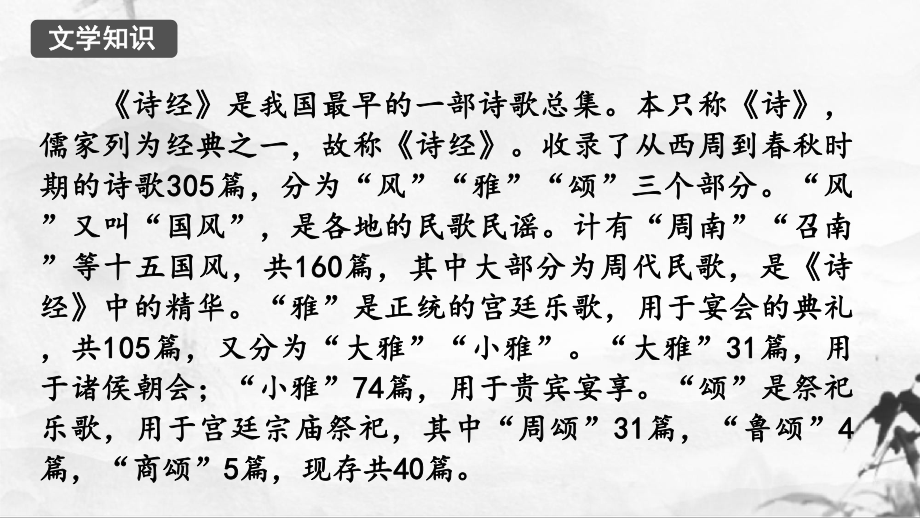 文学知识
《诗经》是我国最早的一部诗歌总集。本只称《诗》，
儒家列为经典之一，故称《诗经》。收录了从西周到春秋时
期的诗歌305篇，分为“风”“雅”“颂”三个部分。“风
”又叫“国风”，是各地的民歌民谣。计有“周南”“召南
”等十五国风，共160篇，其中大部分为周代民歌，是《诗
经》中的精华。“雅”是正统的宫廷乐歌，用于宴会的典礼
，共105篇，又分为“大雅”“小雅”。“大雅”31篇，用
于诸侯朝会；“小雅”74篇，用于贵宾宴享。“颂”是祭祀
乐歌，用于宫廷宗庙祭祀，其中“周颂”31篇，“鲁颂”4
篇，“商颂”5篇，现存共40篇。